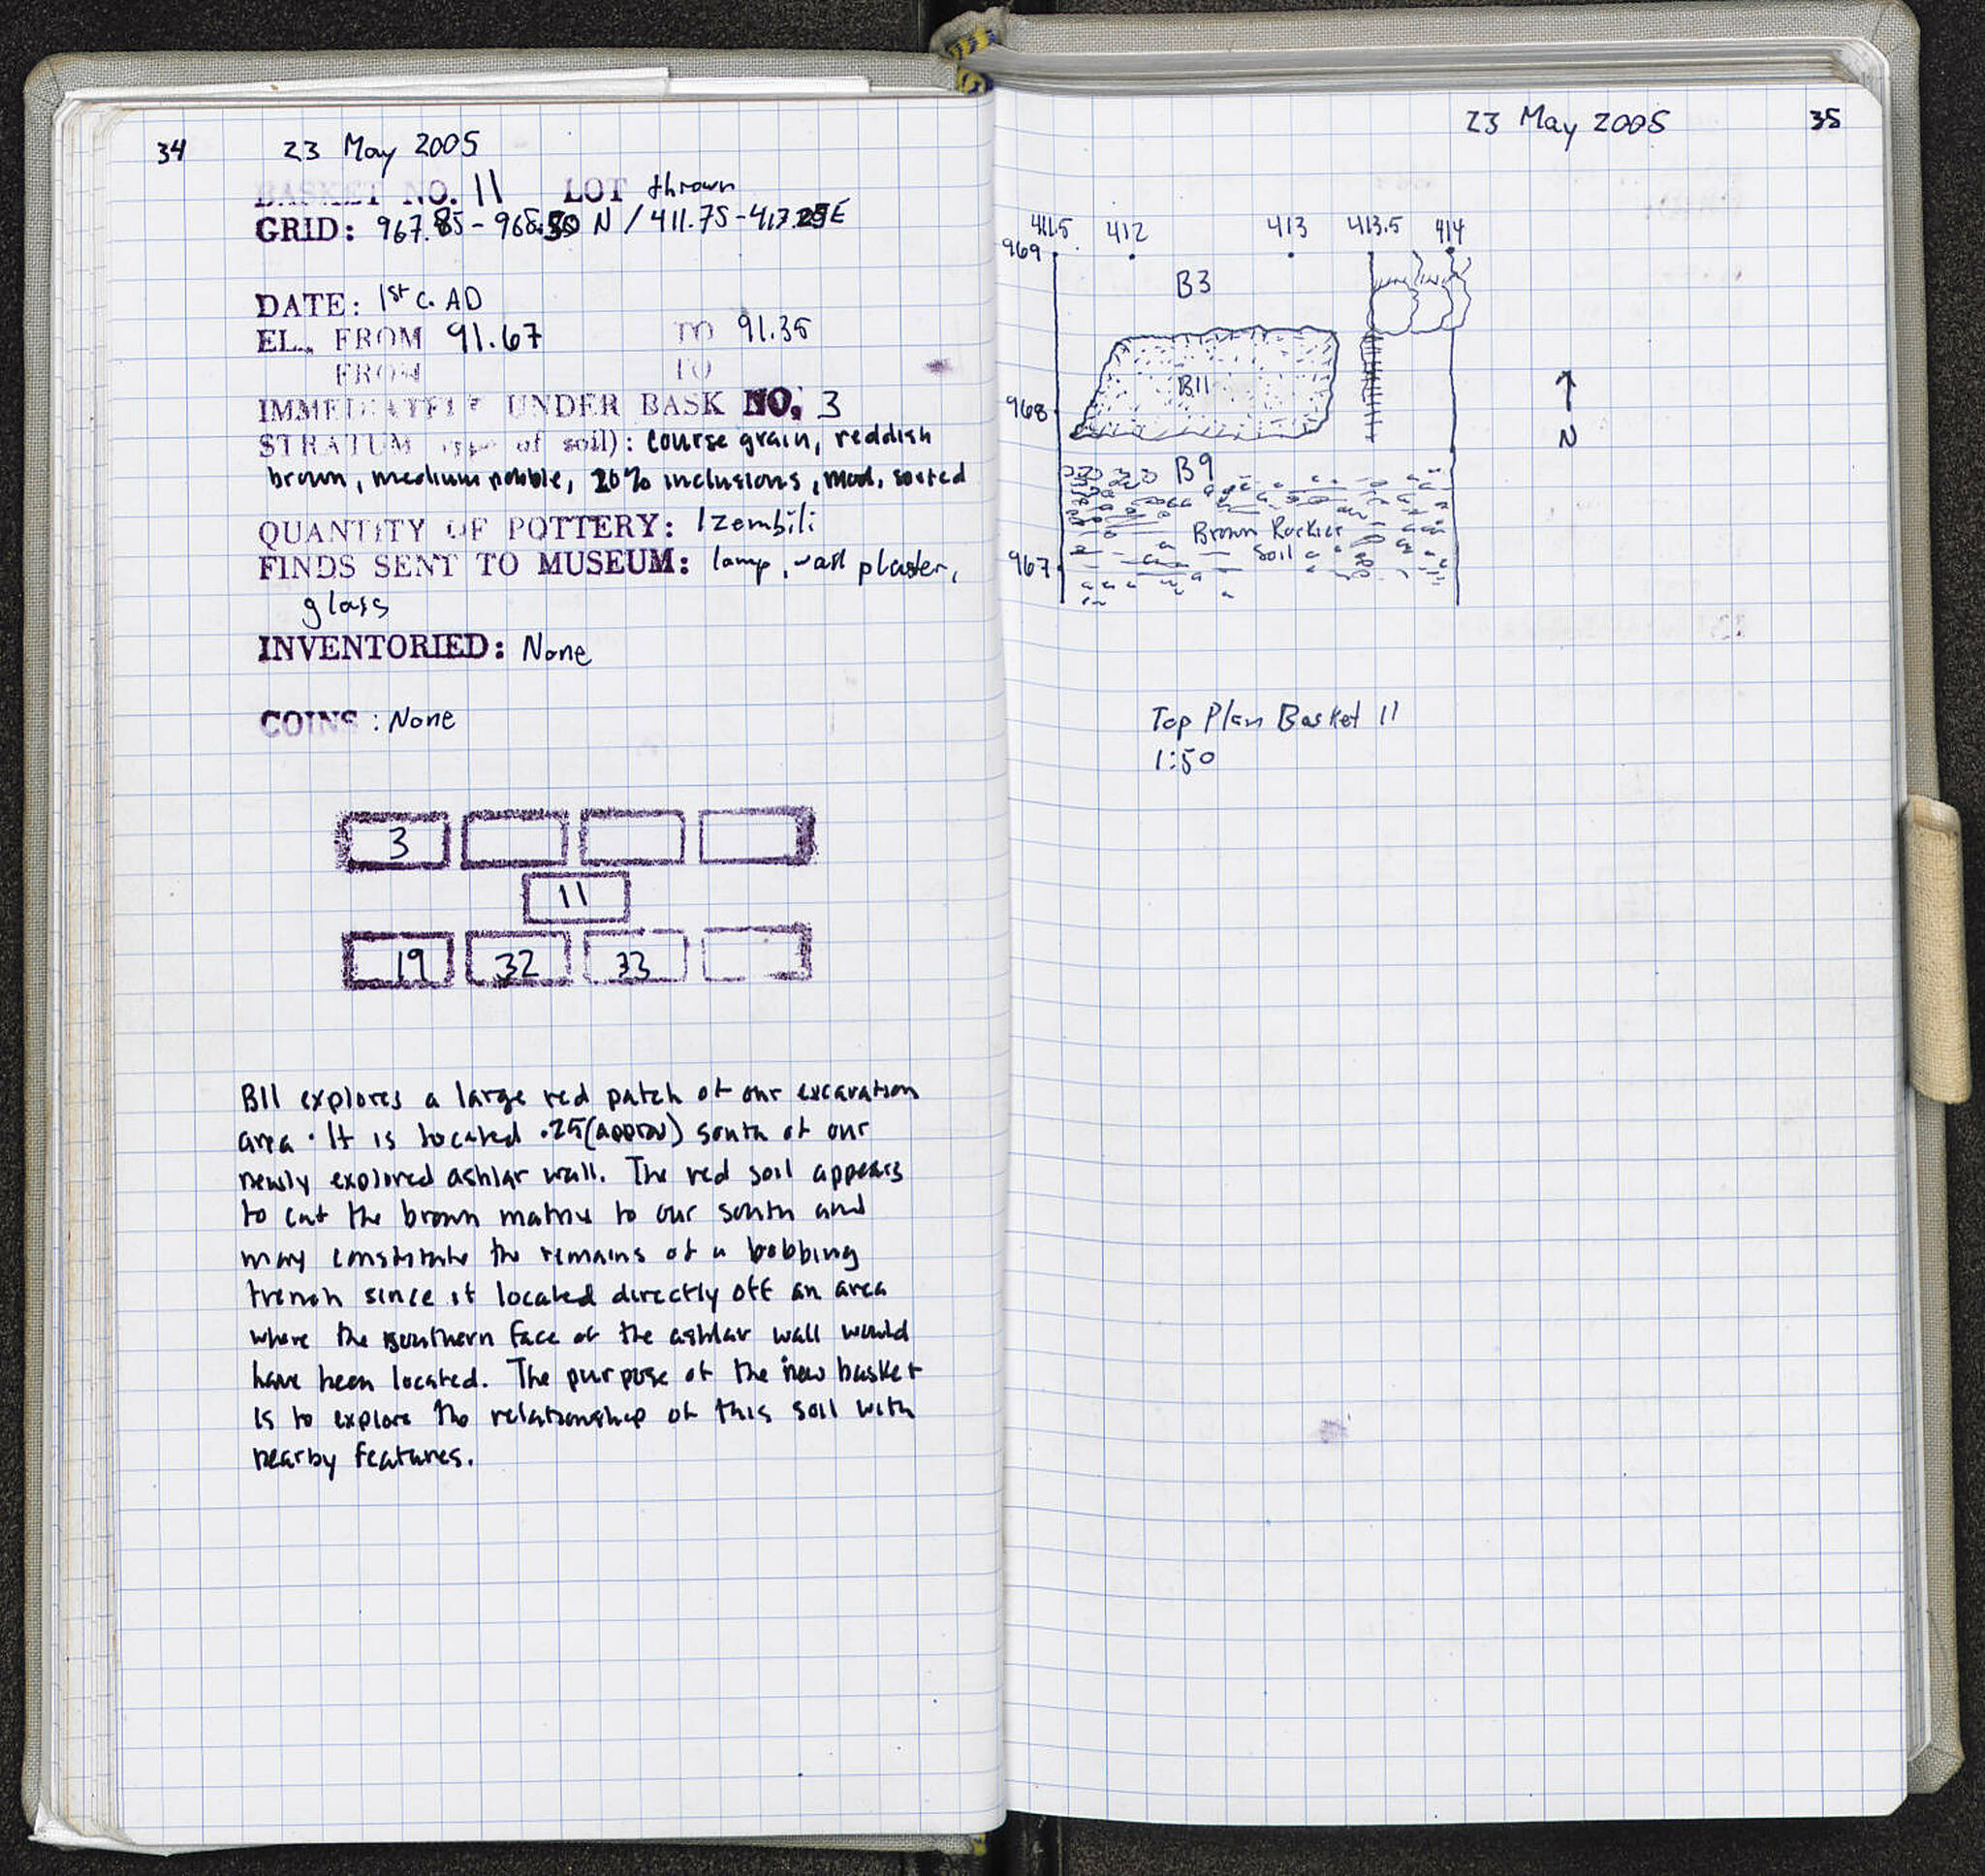 34 23 May 2005
BASKET NO. 11 LOT thrown
GRID: 967.85 - 968.50 N / 411.75 - 417.25 E
DATE: 1st c. AD
EL., FROM 91.67 TO 91.35
FROM TO
IMMEDIATELY UNDER BASK NO. 3
STRATUM type of soil): course grain, reddish
brown, medium pebble, 20% inclusions, mod. sorted
QUANTITY OF POTTERY: 1 zembili
FINDS SENT TO MUSEUM: lamp, wall plaster,
glass
INVENTORIED: None
COINS: None
3
11
19 32 33
B11 explores a large red patch of our excavation
area. It is located .25(approx) south of our
newly explored ashlar wall. The red soil appears
to cut the brown matrix to our south and
may constitute the remains of a bobbing
trench since it located directly off an area
where the southern face of the ashlar wall would
have been located. The purpose of the new basket
is to explore the relationship of this soil with
nearby features.
23 May 2005 35
411.5 412 413 413.5 414
969
B3
B11
968
N
B9
Brown Rockier
Soil
967
Top Plan Basket 11
1:50